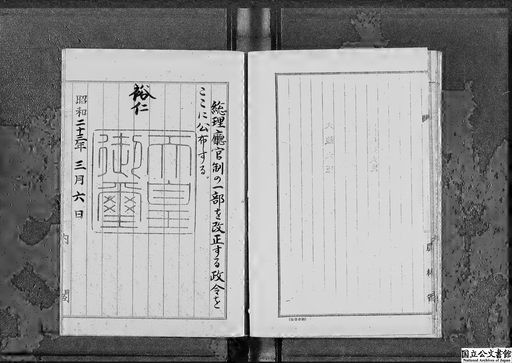 総理廳官制の一部を改正する政令を
ここに公布する。
裕仁
天皇
御璽
昭和二十三年三月六日
内閣
国立公文書館
National Archives of Japan